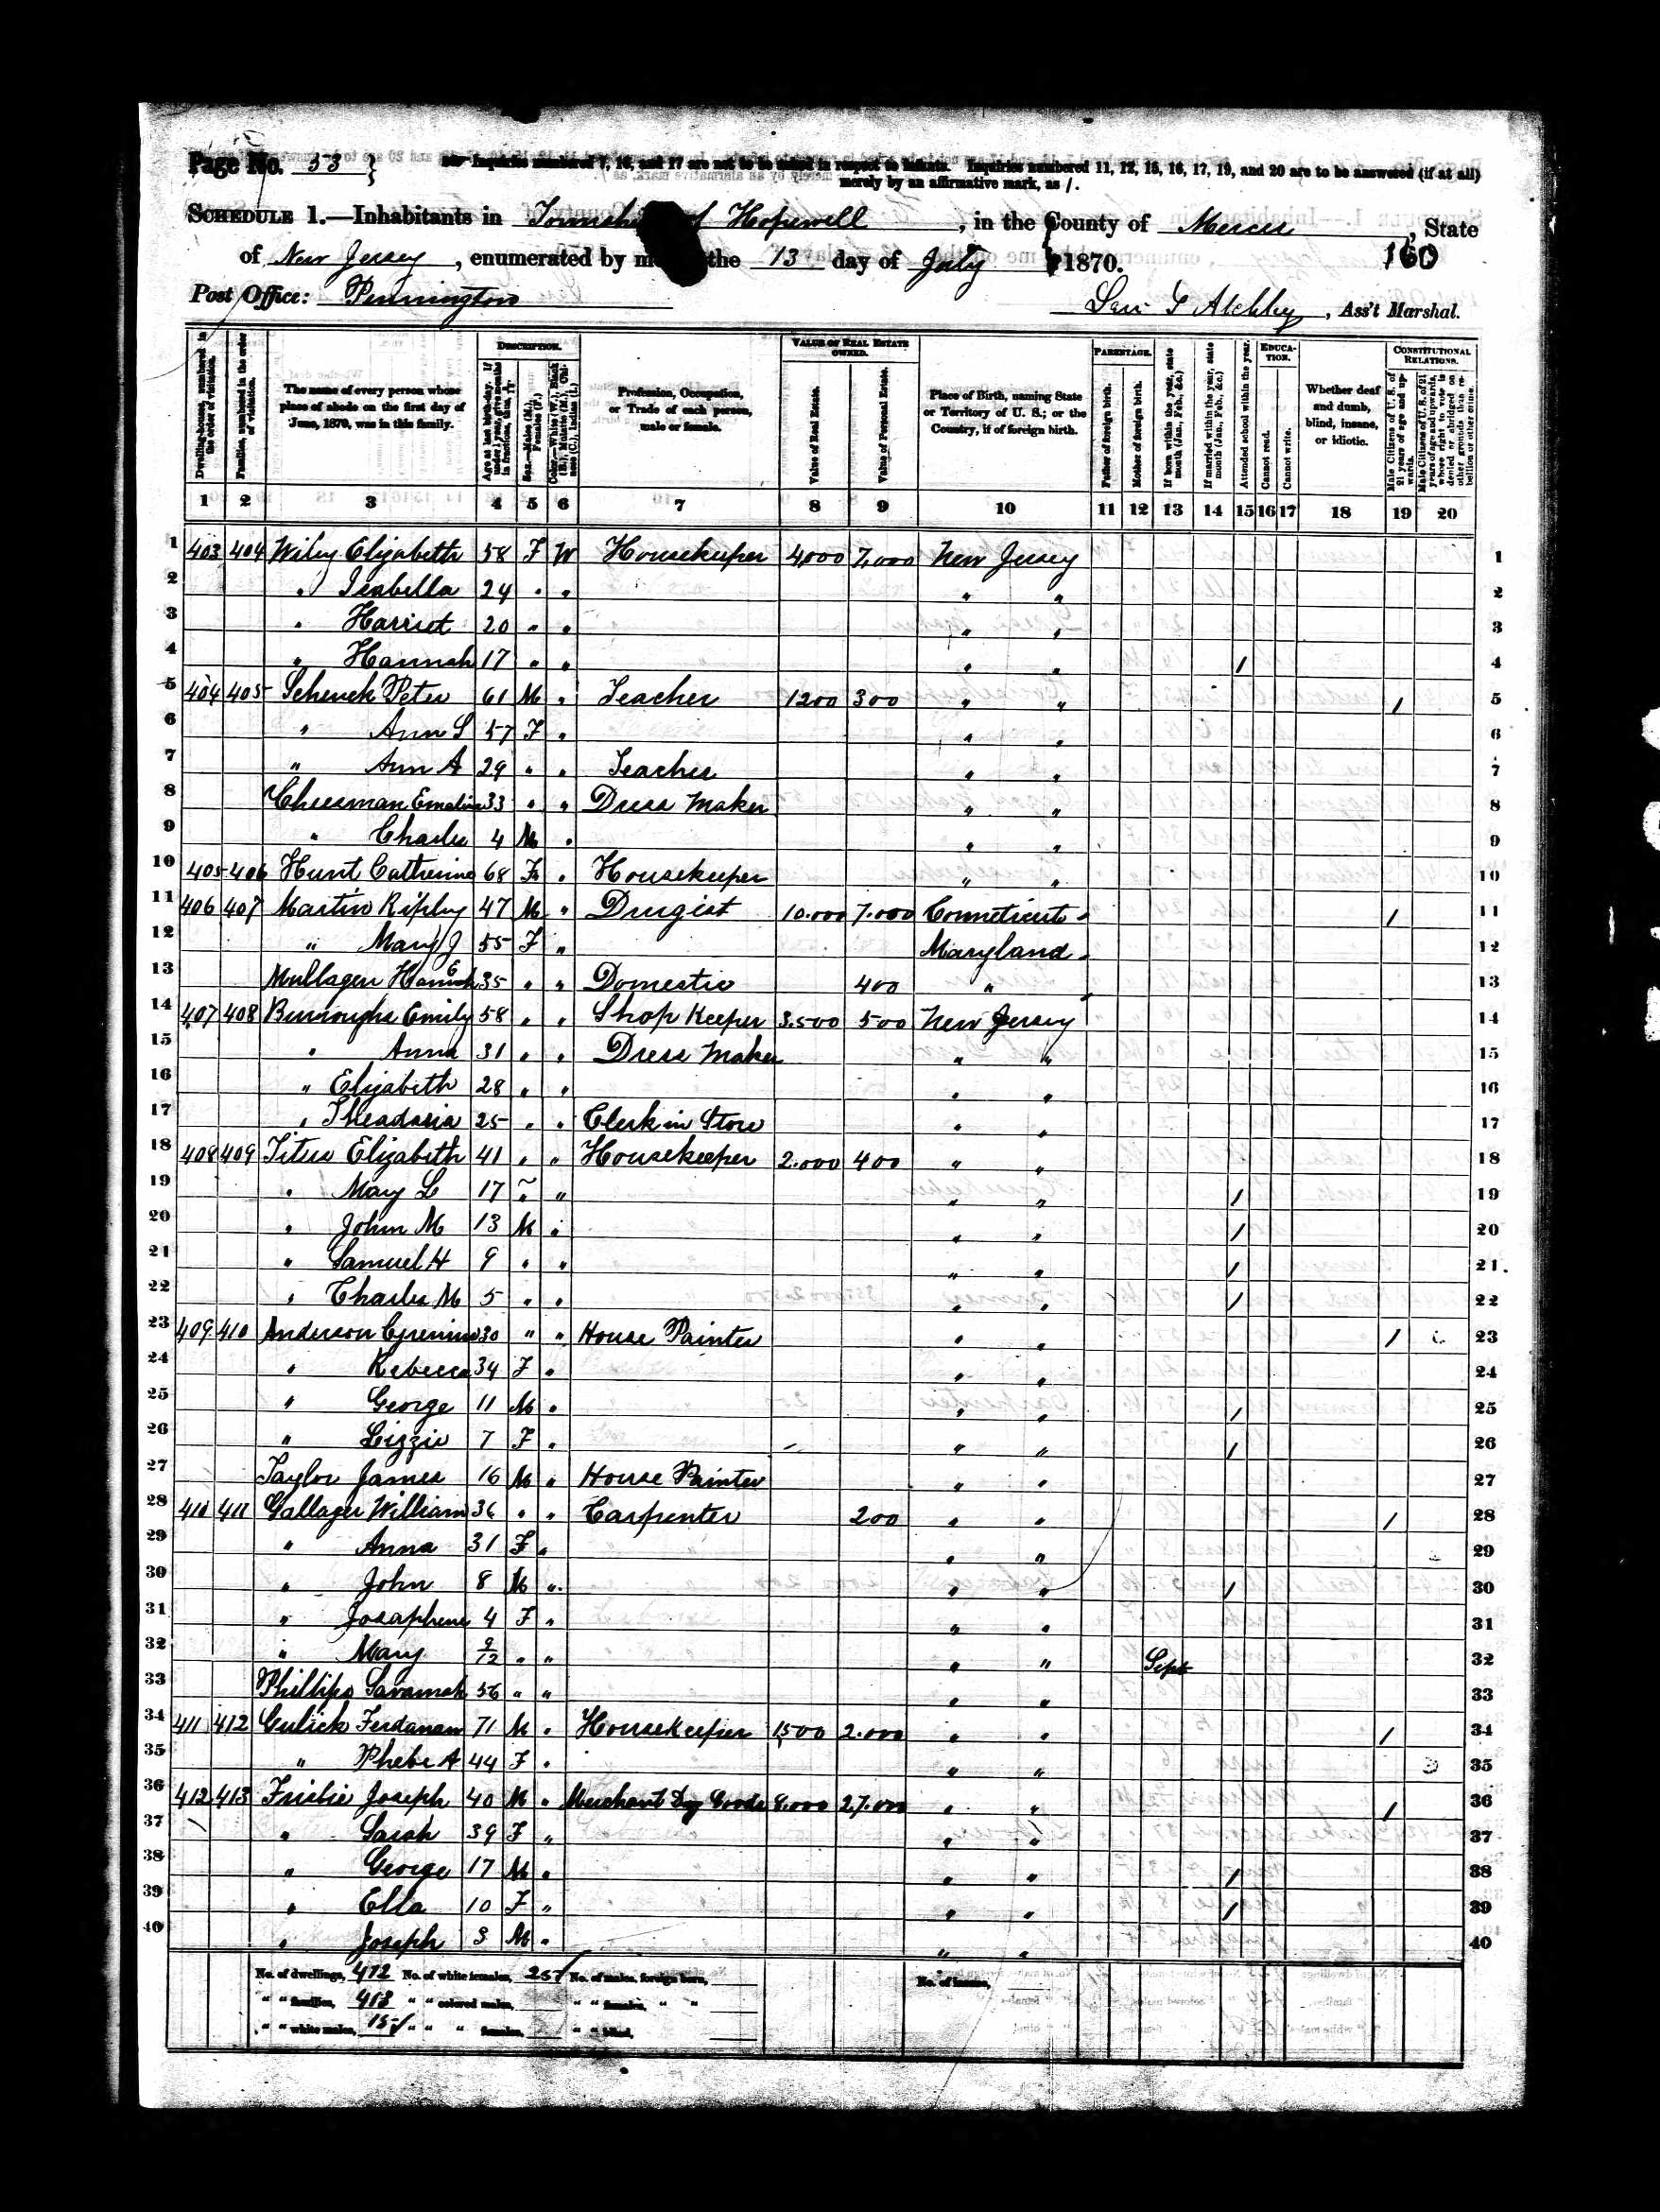 Page No. 53
Inquiries numbered 7, 16, and 17 are not to be asked in respect to infants. Inquiries numbered 11, 12, 15, 16, 17, 19, and 20 are to be answered (if at all)
merely by an affirmative mark, as /.
SCHEDULE 1.—Inhabitants in Township of Hopewell, in the County of Mercer, State
of New Jersey, enumerated by me the 13 day of July 1870.
160
Post Office: Pennington
Atchley, Ass't Marshal.
Dwelling-houses, numbered in the order of visitation.
Families, numbered in the order of visitation.
The name of every person whose place of abode on the first day of June, 1870, was in this family.
DESCRIPTION.
Age at last birth-day. If under 1 year, give months in fractions, thus, 3/12
Sex.—Males (M.), Females (F.)
Color.—White (W.), Black (B.), Mulatto (M.), Chinese (C.), Indian (I.)
Profession, Occupation, or Trade of each person, male or female.
VALUE OF REAL ESTATE OWNED.
Value of Real Estate.
Value of Personal Estate.
Place of Birth, naming State or Territory of U. S.; or the Country, if of foreign birth.
PARENTAGE.
Father of foreign birth.
Mother of foreign birth.
If born within the year, state month (Jan., Feb., &c.)
If married within the year, state month (Jan., Feb., &c.)
Attended school within the year.
EDUCATION.
Cannot read.
Cannot write.
Whether deaf and dumb, blind, insane, or idiotic.
CONSTITUTIONAL RELATIONS.
Male Citizens of U. S. of 21 years of age and upwards.
Male Citizens of U. S. of 21 years of age and upwards, whose right to vote is denied or abridged on other grounds than rebellion or other crime.
1 2 3 4 5 6 7 8 9 10 11 12 13 14 15 16 17 18 19 20
1 403 404 Wiley Elizabeth 58 F W Housekeeper 4,000 7,000 New Jersey 1
2 " Isabella 24 " " " " 2
3 " Harriet 20 " " " " 3
4 " Hannah 17 " " " " / 4
5 404 405 Schenck Peter 61 M " Teacher 1200 300 " " / 5
6 " Ann S 57 F " " " 6
7 " Ann A 29 " " Teacher " " 7
8 Cheesman Emeline 33 " " Dress Maker " " 8
9 " Charles 4 M " " " 9
10 405 406 Hunt Catherine 68 F " Housekeeper " " 10
11 406 407 Martin Ripley 47 M " Drugist 10.000 7.000 Conneticut / 11
12 " Mary J 55 F " Maryland 12
13 Mullagen Hannah E 35 " " Domestic 400 " 13
14 407 408 Burroughs Emily 58 " " Shop Keeper 3.500 500 New Jersey 14
15 " Anna 31 " " Dress Maker " " 15
16 " Elizabeth 28 " " " " 16
17 " Theadasia 25 " " Clerk in Store " " 17
18 408 409 Titus Elizabeth 41 " " Housekeeper 2.000 400 " " 18
19 " Mary L 17 " " " " / 19
20 " John M 13 M " " " / 20
21 " Samuel H 9 " " " " / 21
22 " Charles M 5 " " " " / 22
23 409 410 Anderson 30 " " House Painter " " / 23
24 " Rebecca 34 F " " " 24
25 " George 11 M " " " / 25
26 " Lizzie 7 F " " " / 26
27 Taylor James 16 M " House Painter " " 27
28 410 411 Gallager William 36 " " Carpenter 200 " " / 28
29 " Anna 31 F " " " 29
30 " John 8 M " " " / 30
31 " Josaphene 4 F " " " 31
32 " Mary 9/12 " " " " Sept 32
33 Phillips Savannah 56 " " " " 33
34 411 412 Gulick Ferdanam 71 M " Housekeeper 1500 2.000 " " / 34
35 " Phebe A 44 F " " " 35
36 412 413 Frisbie Joseph 40 M " Merchant Dry Goods 8.000 27.000 " " / 36
37 " Sarah 39 F " " " 37
38 " George 17 M " " " / 38
39 " Ella 10 F " " " / 39
40 " Joseph 3 M " " " 40
No. of dwellings, 412 No. of white females, 25 No. of males, foreign born, No. of insane,
" " families, 413 " " colored males, " " females, " "
" " white males, 15 " " " females, " " blind,